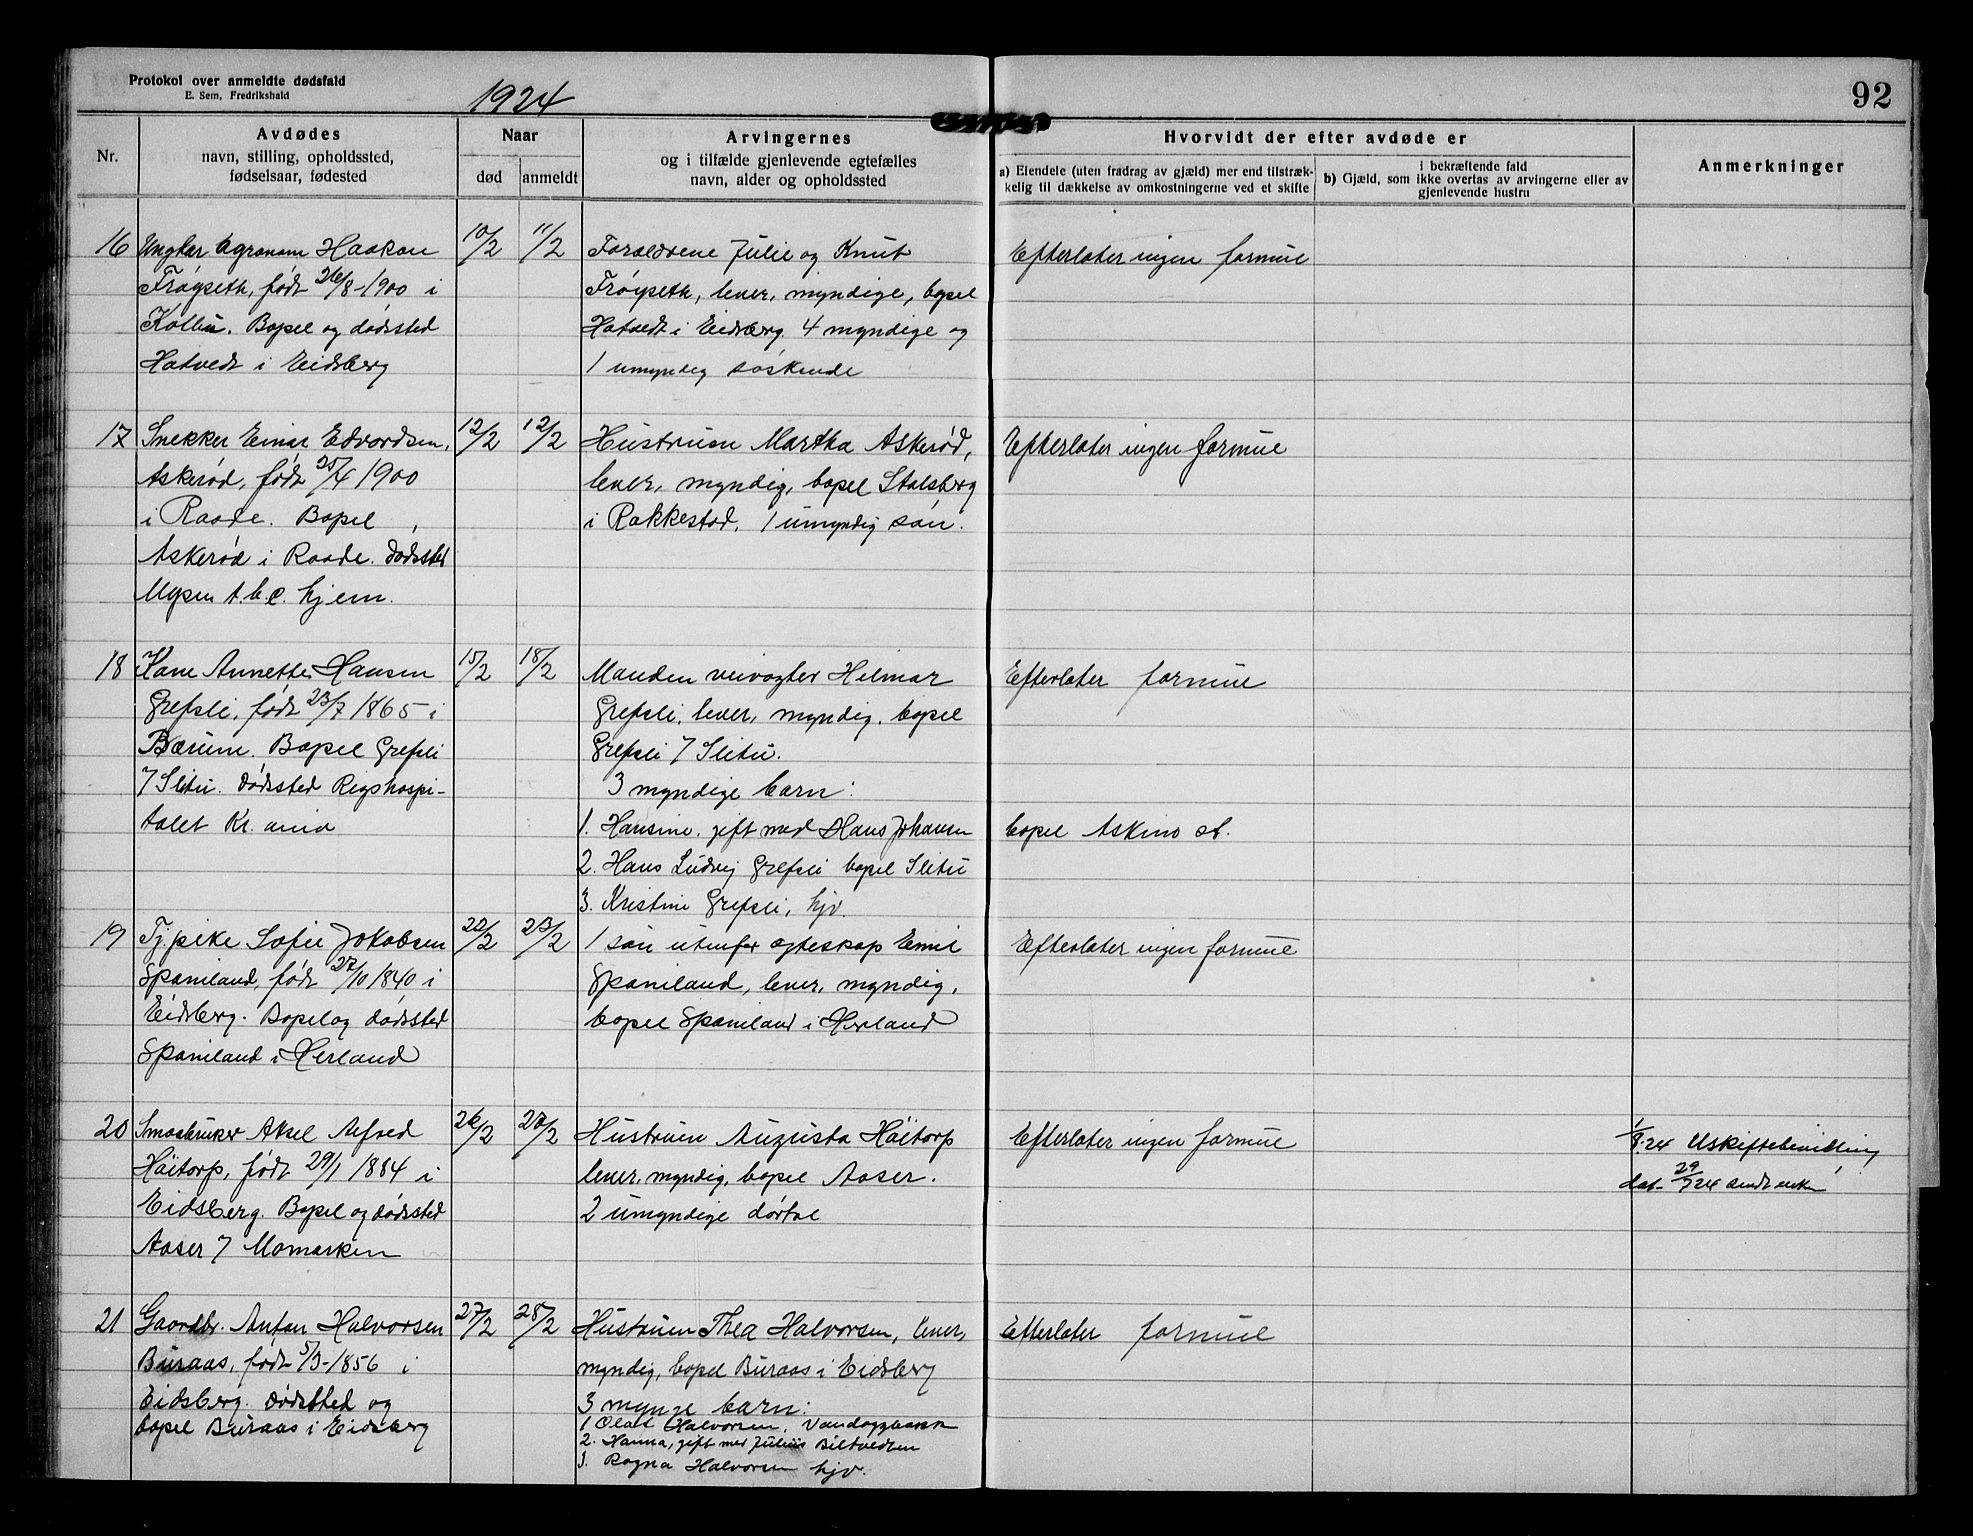 Protokol over anmeldte dødsfald
E. Sem, Fredrikshald
1924
92
Nr.
Avdødes
navn, stilling, opholdssted,
fødselsaar, fødested
Naar
død
anmeldt
Arvingernes
og i tilfælde gjenlevende egtefælles
navn, alder og opholdssted
Hvorvidt der efter avdøde er
a) Eiendele (uten fradrag av gjæld) mer end tilstræk-
kelig til dækkelse av omkostningerne ved et skifte
i bekræftende fald
b) Gjæld, som ikke overtas av arvingerne eller av
gjenlevende hustru
Anmerkninger
16
Ungkar Agronom Haakon
Frøyseth, født 26/8-1900 i
Kolbu. Bopel og dødssted
Hatvedt i Eidsberg
10/2
11/2
Forældrene Julie og Knut
Frøyseth, lever, myndige, bopel
Hatvedt i Eidsberg. 4 myndige og
1 umyndig søskende
Efterlater ingen formue
17
Snekker Einar Edvardsen,
Askerød, født 25/4 1900
i Raade. Bopel
Askerød i Raade. Dødssted
Mysen t.b.c. hjem.
12/2
12/2
Hustruen Martha Askerød,
lever, myndig, bopel Stalsberg
i Rakkestad, 1 umyndig søn.
Efterlater ingen formue
18
Kone Annette Hansen
Grefsli, født 23/7 1865 i
Bærum. Bopel Grefsli
7 Slitu. Dødssted Rigshospi-
talet Kr.ania
15/2
18/2
Manden veivogter Helmar
Grefsli, lever, myndig, bopel
Grefsli 7 Slitu.
3 myndige barn:
1. Hansine, gift med Hans Johansen
2. Hans Ludvig Grefsli bopel Slitu
3. Kristine Grefsli, hjv.
Efterlater formue
bopel Askim st.
19
Tj.pike Sofie Jakobsen
Spæniland, født 27/10 1840 i
Eidsberg. Bopel og dødssted
Spæniland i Herland
22/2
23/2
1 søn utenfor egteskap Emil
Spæniland, lever, myndig,
bopel Spæniland i Herland
Efterlater ingen formue
20
Smaabruker Aksel Alfred
Höitorp, født 29/1 1884 i
Eidsberg. Bopel og dødssted
Aaser 7 Momarken
26/2
27/2
Hustruen Augusta Höitorp
lever, myndig, bopel Aaser.
2 umyndige døtre
Efterlater ingen formue
1/8.24 Uskiftebevilling
dat. 29/7 24 sendt
21
Gaardbr. Anton Halvorsen
Buraas, født 5/3-1856 i
Eidsberg. Dødssted og
bopel Buraas i Eidsberg
27/2
28/2
Hustruen Thea Halvorsen, lever,
myndig, bopel Buraas i Eidsberg
3 mynge barn:
1 Olaf Halvorsen,
2. Hanna, gift med Julius
3. Ragna Halvorsen hjv.
Efterlater formue